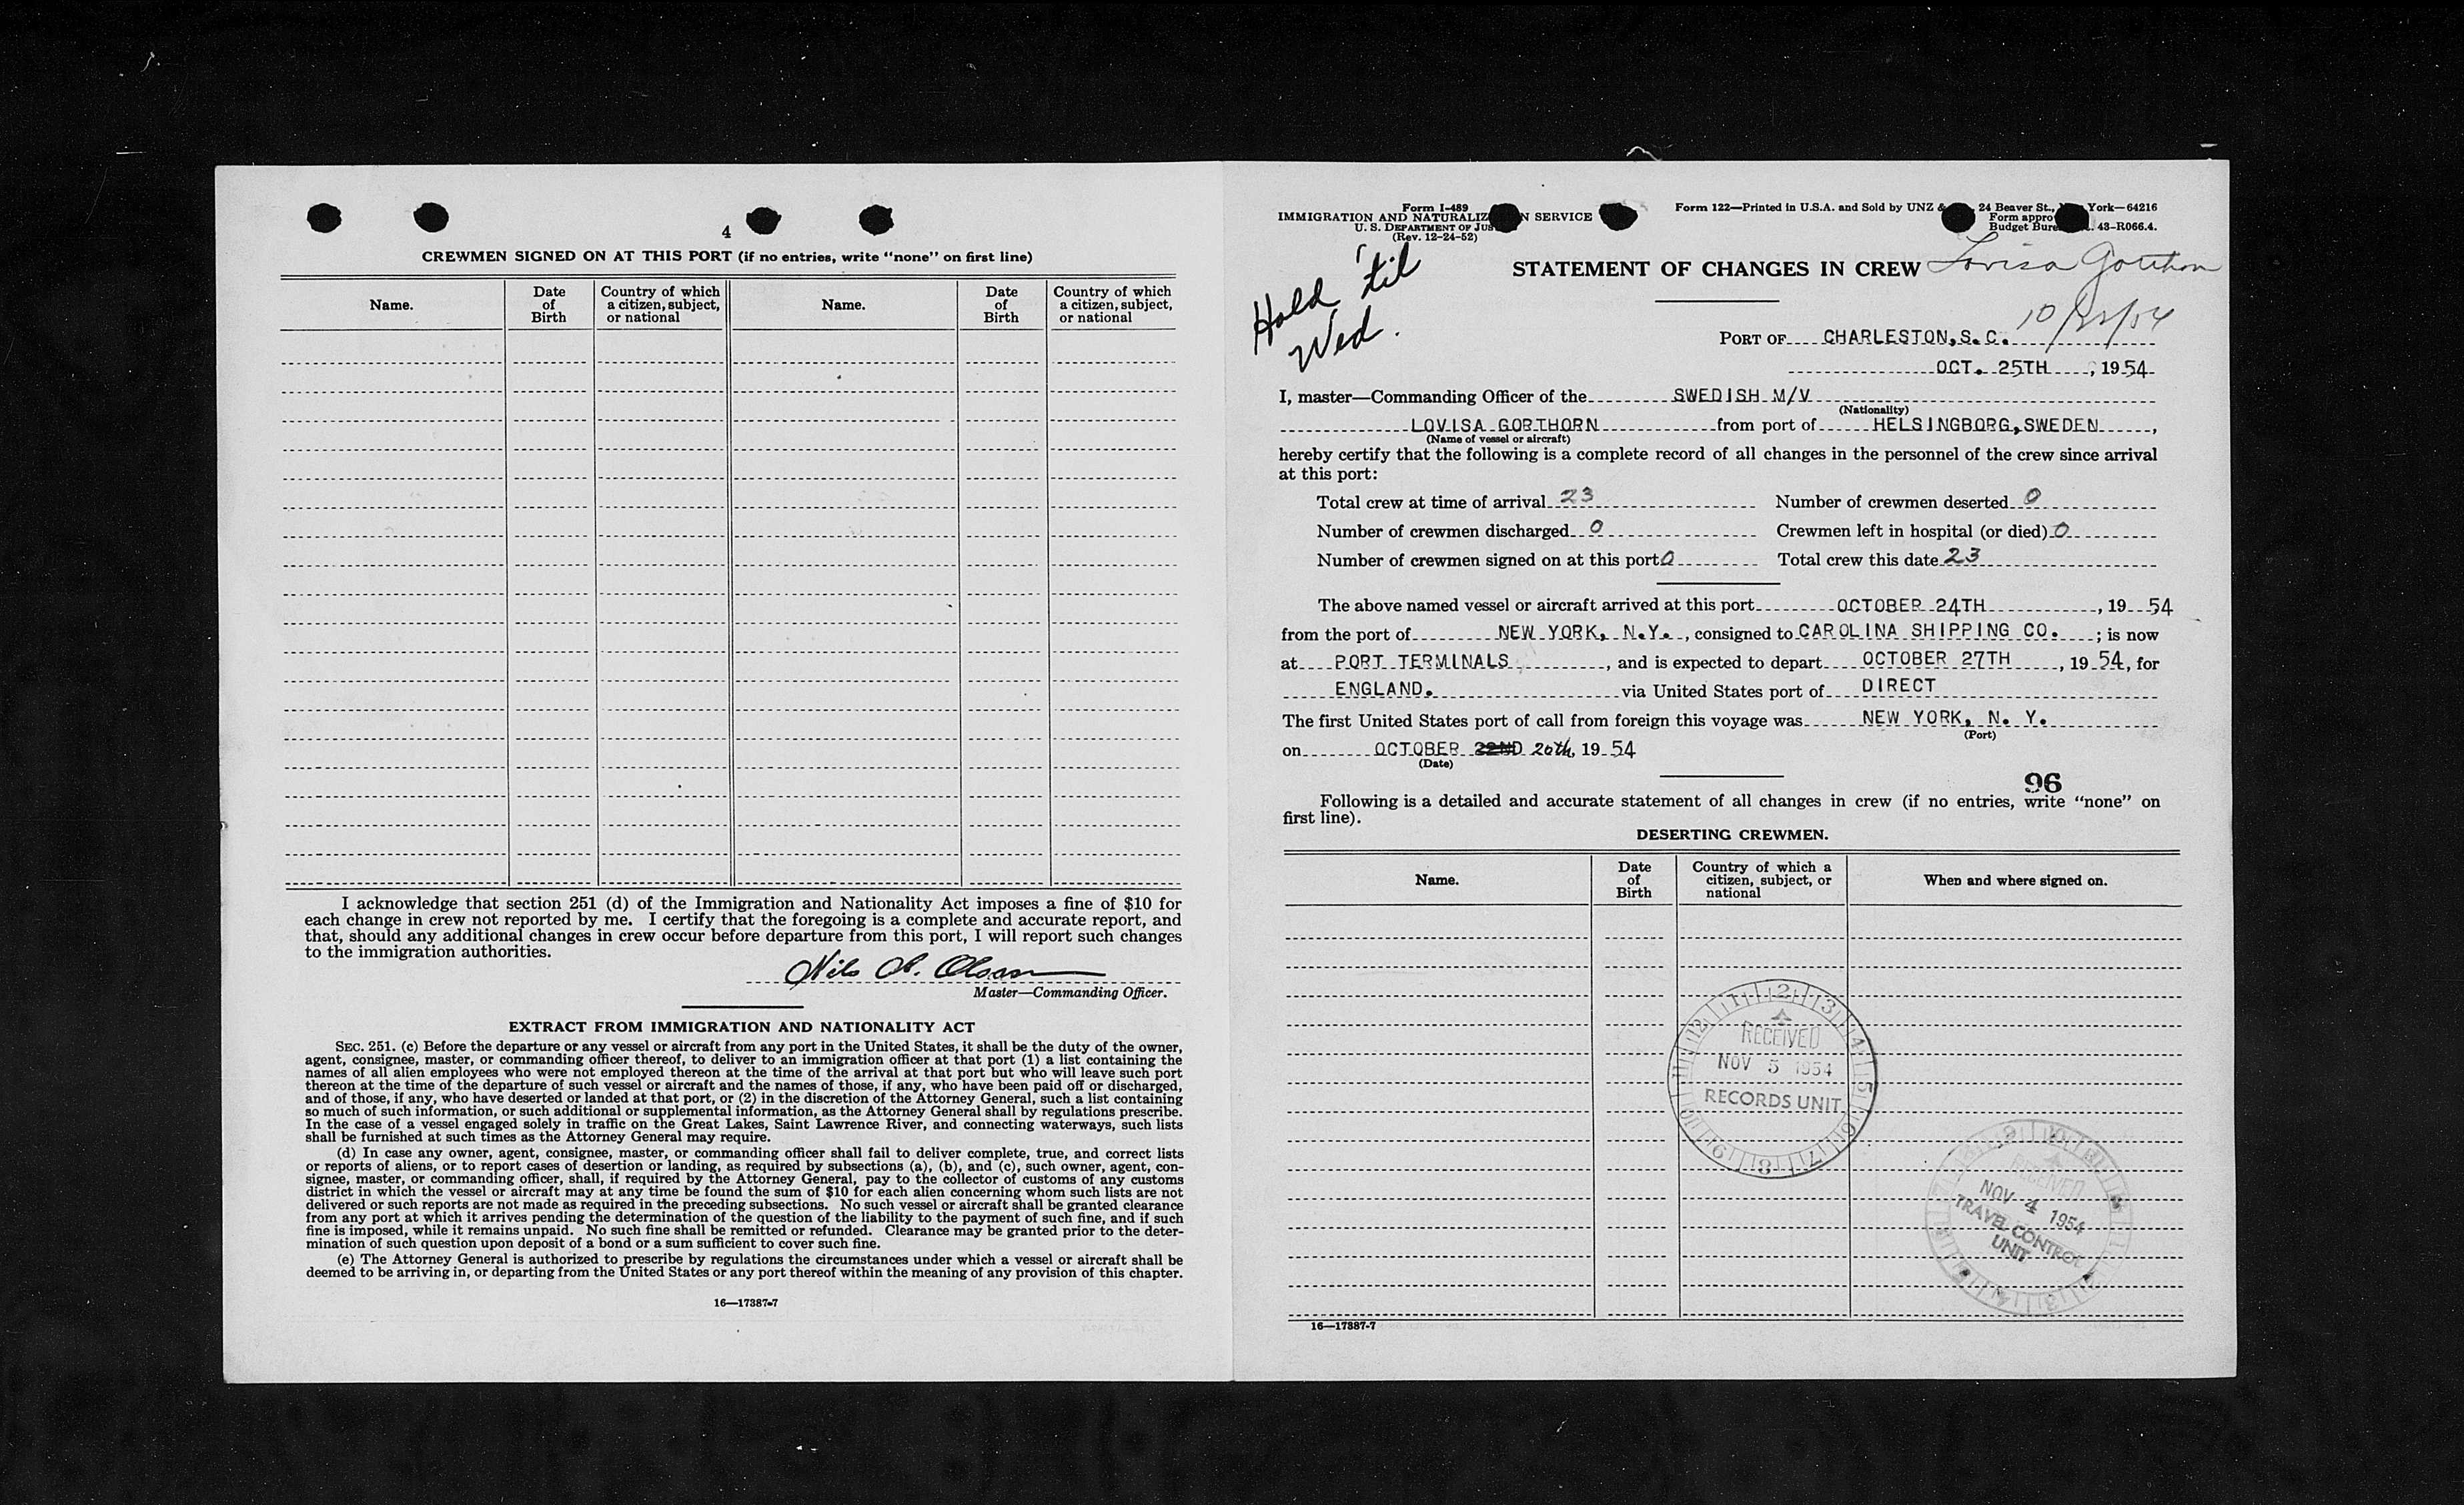 4
CREWMEN SIGNED ON AT THIS PORT (if no entries, write "none" on first line)
Name. Date of Birth Country of which a citizen, subject, or national Name. Date of Birth Country of which a citizen, subject, or national
I acknowledge that section 251 (d) of the Immigration and Nationality Act imposes a fine of $10 for
each change in crew not reported by me. I certify that the foregoing is a complete and accurate report, and
that, should any additional changes in crew occur before departure from this port, I will report such changes
to the immigration authorities.
Nils Olsson
Master—Commanding Officer.
EXTRACT FROM IMMIGRATION AND NATIONALITY ACT
SEC. 251. (c) Before the departure or any vessel or aircraft from any port in the United States, it shall be the duty of the owner,
agent, consignee, master, or commanding officer thereof, to deliver to an immigration officer at that port (1) a list containing the
names of all alien employees who were not employed thereon at the time of the arrival at that port but who will leave such port
thereon at the time of the departure of such vessel or aircraft and the names of those, if any, who have been paid off or discharged,
and of those, if any, who have deserted or landed at that port, or (2) in the discretion of the Attorney General, such a list containing
so much of such information, or such additional or supplemental information, as the Attorney General shall by regulations prescribe.
In the case of a vessel engaged solely in traffic on the Great Lakes, Saint Lawrence River, and connecting waterways, such lists
shall be furnished at such times as the Attorney General may require.
(d) In case any owner, agent, consignee, master, or commanding officer shall fail to deliver complete, true, and correct lists
or reports of aliens, or to report cases of desertion or landing, as required by subsections (a), (b), and (c), such owner, agent, con-
signee, master, or commanding officer, shall, if required by the Attorney General, pay to the collector of customs of any customs
district in which the vessel or aircraft may at any time be found the sum of $10 for each alien concerning whom such lists are not
delivered or such reports are not made as required in the preceding subsections. No such vessel or aircraft shall be granted clearance
from any port at which it arrives pending the determination of the question of the liability to the payment of such fine, and if such
fine is imposed, while it remains unpaid. No such fine shall be remitted or refunded. Clearance may be granted prior to the deter-
mination of such question upon deposit of a bond or a sum sufficient to cover such fine.
(e) The Attorney General is authorized to prescribe by regulations the circumstances under which a vessel or aircraft shall be
deemed to be arriving in, or departing from the United States or any port thereof within the meaning of any provision of this chapter.
16—17387-7
Form I-489
IMMIGRATION AND NATURALIZ N SERVICE
U. S. DEPARTMENT OF JUS
(Rev. 12-24-52)
Form 122—Printed in U.S.A. and Sold by UNZ & 24 Beaver St., York—64216
Form appro
Budget Bure 43-R066.4.
Hold 'til
Wed.
STATEMENT OF CHANGES IN CREW Lovisa Gorthon
PORT OF CHARLESTON, S. C.
OCT. 25TH, 1954
I, master—Commanding Officer of the SWEDISH M/V
(Nationality)
LOVISA GORTHORN from port of HELSINGBORG, SWEDEN,
(Name of vessel or aircraft)
hereby certify that the following is a complete record of all changes in the personnel of the crew since arrival
at this port:
Total crew at time of arrival 23 Number of crewmen deserted 0
Number of crewmen discharged 0 Crewmen left in hospital (or died) 0
Number of crewmen signed on at this port 0 Total crew this date 23
The above named vessel or aircraft arrived at this port OCTOBER 24TH, 19 54
from the port of NEW YORK, N.Y., consigned to CAROLINA SHIPPING CO.; is now
at PORT TERMINALS, and is expected to depart OCTOBER 27TH, 19 54, for
ENGLAND. via United States port of DIRECT
The first United States port of call from foreign this voyage was NEW YORK, N. Y.
(Port)
on OCTOBER 22ND 20th, 19 54
(Date)
96
Following is a detailed and accurate statement of all changes in crew (if no entries, write "none" on
first line).
DESERTING CREWMEN.
Name. Date of Birth Country of which a citizen, subject, or national When and where signed on.
RECEIVED
NOV 5 1954
RECORDS UNIT
RECEIVED
NOV 4 1954
TRAVEL CONTROL
UNIT
16—17387-7